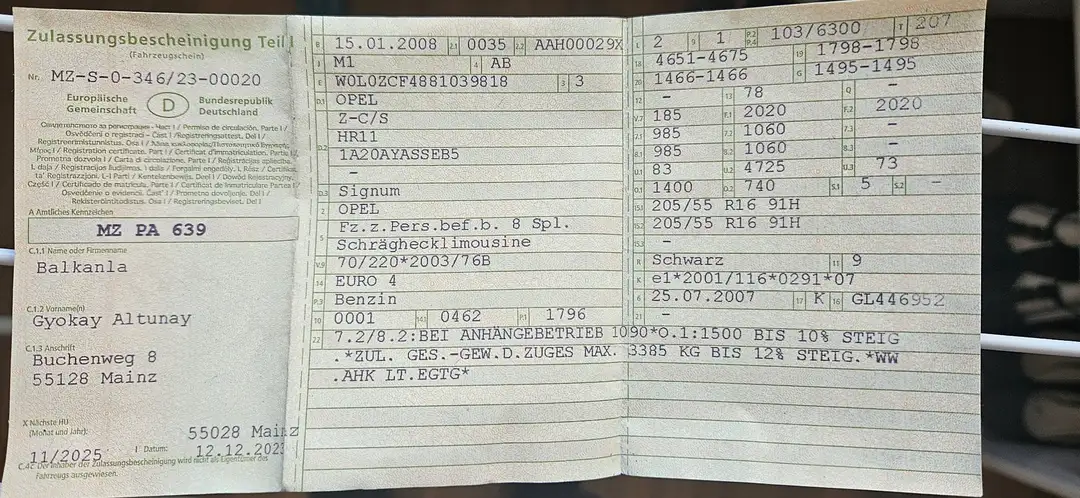 Zulassungsbescheinigung Teil I
(Fahrzeugschein)
Nr. MZ-S-0-346/23-00020
Europäische Gemeinschaft
D
Bundesrepublik Deutschland
A Amtliches Kennzeichen
MZ PA 639
C.1.1 Name oder Firmenname
Balkanla
C.1.2 Vorname(n)
Gyokay Altunay
C.1.3 Anschrift
Buchenweg 8
55128 Mainz
X Nächste HU
(Monat und Jahr):
55028 Mainz
11/2025
I Datum:
12.12.2023
C.4c Der Inhaber der Zulassungsbescheinigung wird nicht als Eigentümer des
Fahrzeugs ausgewiesen.
B 15.01.2008 2.1 0035 2.2 AAH00029X
J M1 4 AB
E W0L0ZCF4881039818 3 3
D.1 OPEL
Z-C/S
D.2 HR11
1A20AYASSEB5
–
D.3 Signum
2 OPEL
5 Fz.z.Pers.bef.b. 8 Spl.
Schräghecklimousine
V.9 70/220*2003/76B
14 EURO 4
P.3 Benzin
10 0001 14.1 0462 P.1 1796
22 7.2/8.2:BEI ANHÄNGEBETRIEB 1090*O.1:1500 BIS 10% STEIG
.*ZUL. GES.-GEW.D.ZUGES MAX. 3385 KG BIS 12% STEIG.*WW
.AHK LT.EGTG*
L 2 9 1 P.2 P.4 103/6300 T 207
18 4651-4675 19 1798-1798
20 1466-1466 G 1495-1495
12 – 13 78 Q –
V.7 185 F.1 2020 F.2 2020
7.1 985 7.2 1060 7.3 –
8.1 985 8.2 1060 8.3 –
U.1 83 U.2 4725 U.3 73
O.1 1400 O.2 740 S.1 5 S.2
15.1 205/55 R16 91H
15.2 205/55 R16 91H
15.3 –
R Schwarz 11 9
K e1*2001/116*0291*07
6 25.07.2007 17 K 16 GL446952
21 –